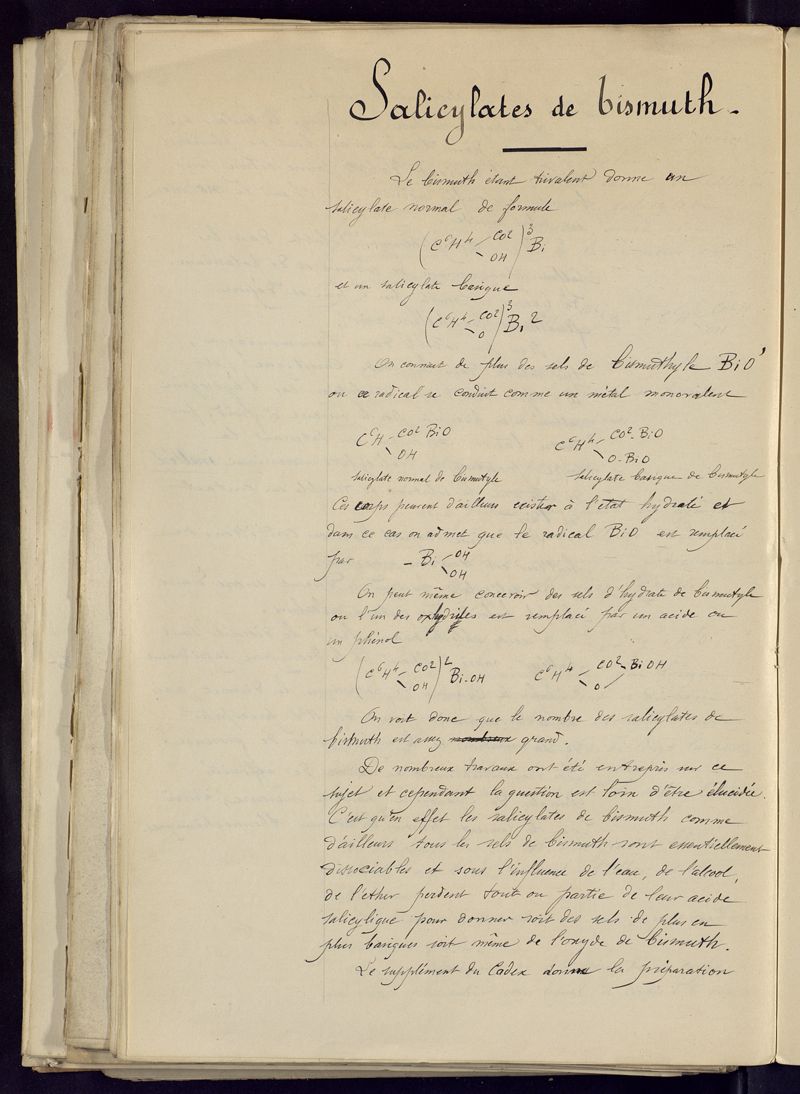 Salicylates de bismuth.
Le bismuth étant trivalent donne un
salicylate normal de formule
(C⁶H⁴ CO² OH)³ Bi
et un salicylate basique
(C⁶H⁴ CO² O)³ Bi²
On connait de plus des sels de bismuthyle BiO'
ou ce radical se conduit comme un métal monovalent
C⁶H CO² BiO OH
C⁶H⁴ CO²-BiO O-BiO
salicylate normal de bismutyle
salicylate basique de bismutyle
Ces corps peuvent d'ailleurs exister à l'état hydraté et
dans ce cas on admet que le radical BiO est remplacé
par - Bi OH OH
On peut même concevoir des sels d'hydrate de bismutyle
ou l'un des oxhydriles est remplacé par un acide ou
un phénol
(C⁶H⁴ CO² OH)² Bi-OH
C⁶H⁴ CO² BiOH O
On voit donc que le nombre des salicylates de
bismuth est assez nombreux grand.
De nombreux travaux ont été entrepris sur ce
sujet et cependant la question est loin d'être élucidée.
C'est qu'en effet les salicylates de bismuth comme
d'ailleurs tous les sels de bismuth sont essentiellement
dissociables et sous l'influence de l'eau, de l'alcool,
de l'ether perdent tout ou partie de leur acide
salicylique pour donner soit des sels de plus en
plus basiques soit même de l'oxyde de bismuth.
Le supplément du Codex donne la préparation